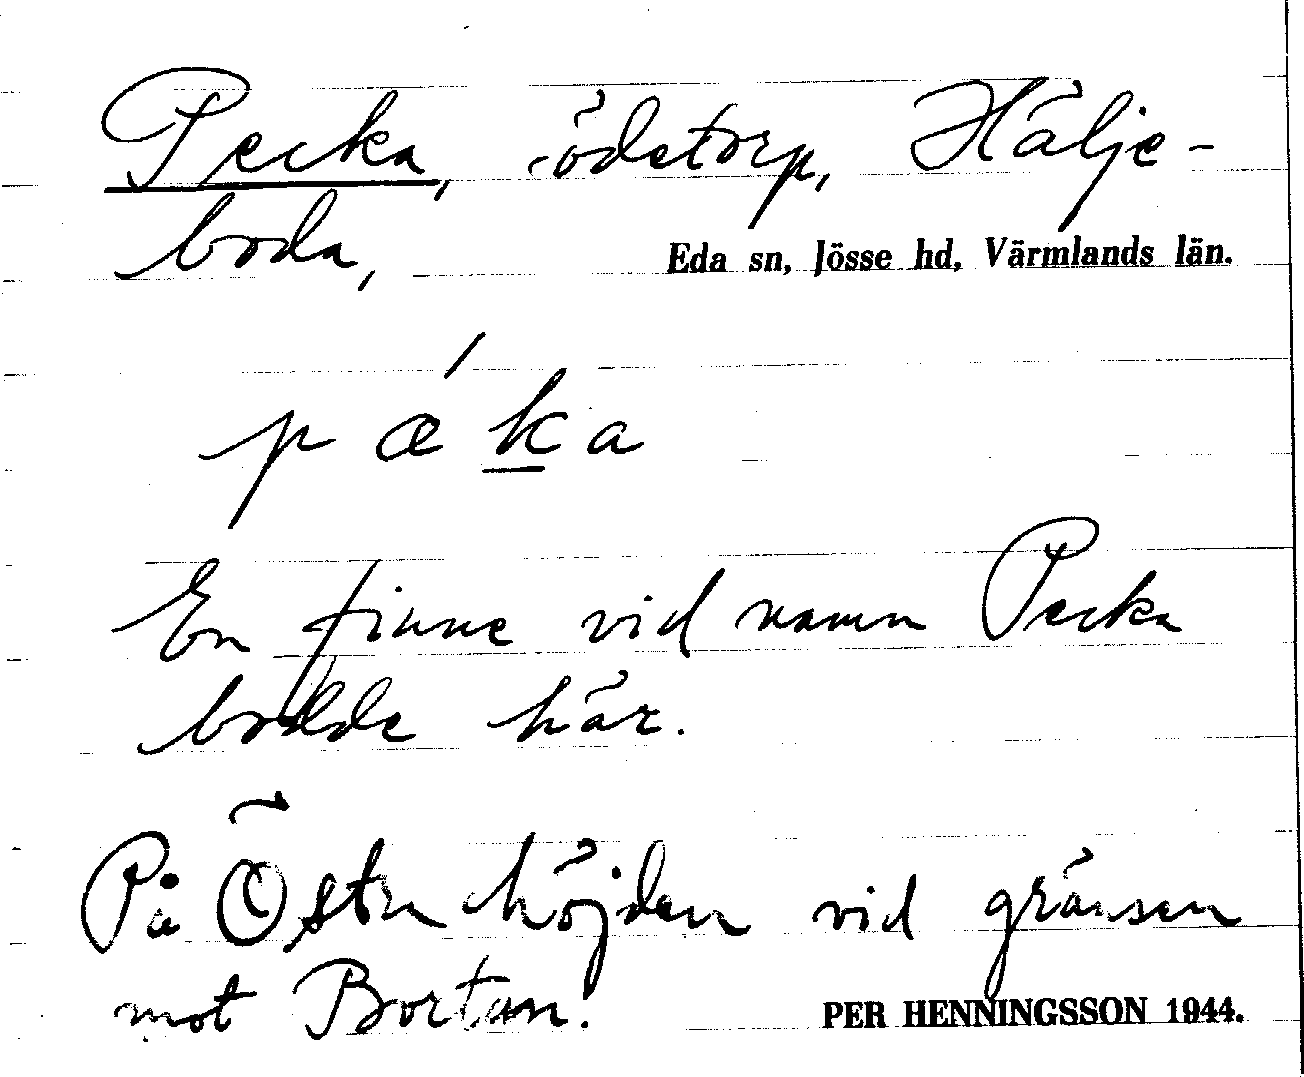 Pecka, ödetorp, Hälje-
boda,
Eda sn, Jösse hd, Värmlands län.
pǽka
En finne vid namn Pecka
bodde här.
På Östra höjden vid gränsen
mot Bortan.
PER HENNINGSSON 1944.